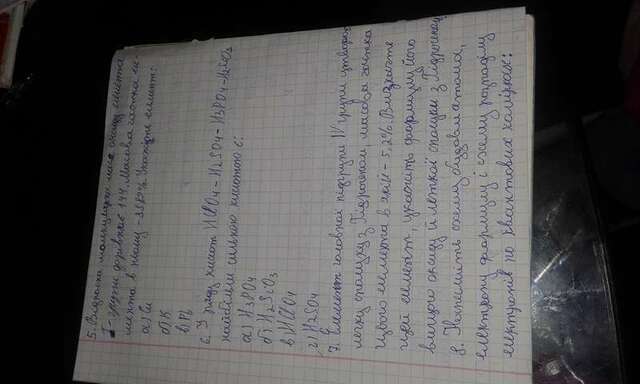 5. Відносна молекулярна маса оксиду елемента
групи дорівнює 144. Масова частка еле-
мента в ньому -
Укажіть елемент:
а)
б) К
в)
6. У ряду кислот HClO4 - H2SO4 - H3PO4 - H2SiO3
найбільш сильною кислотою є:
а) H3PO4
б) H2SiO3
в) HClO4
г) H2SO4
7. Елемент головної підгрупи IV групи утворює
летку сполуку з Гідрогеном, масова частка
якого в ній - 5,2%. Визначте
цей елемент, укажіть формули його
вищого оксиду и леткой сполуки з Гідрогеном.
8. Напишіть схему будови атома,
електронну формулу і схему розподілу
електронів по квантових комірках: